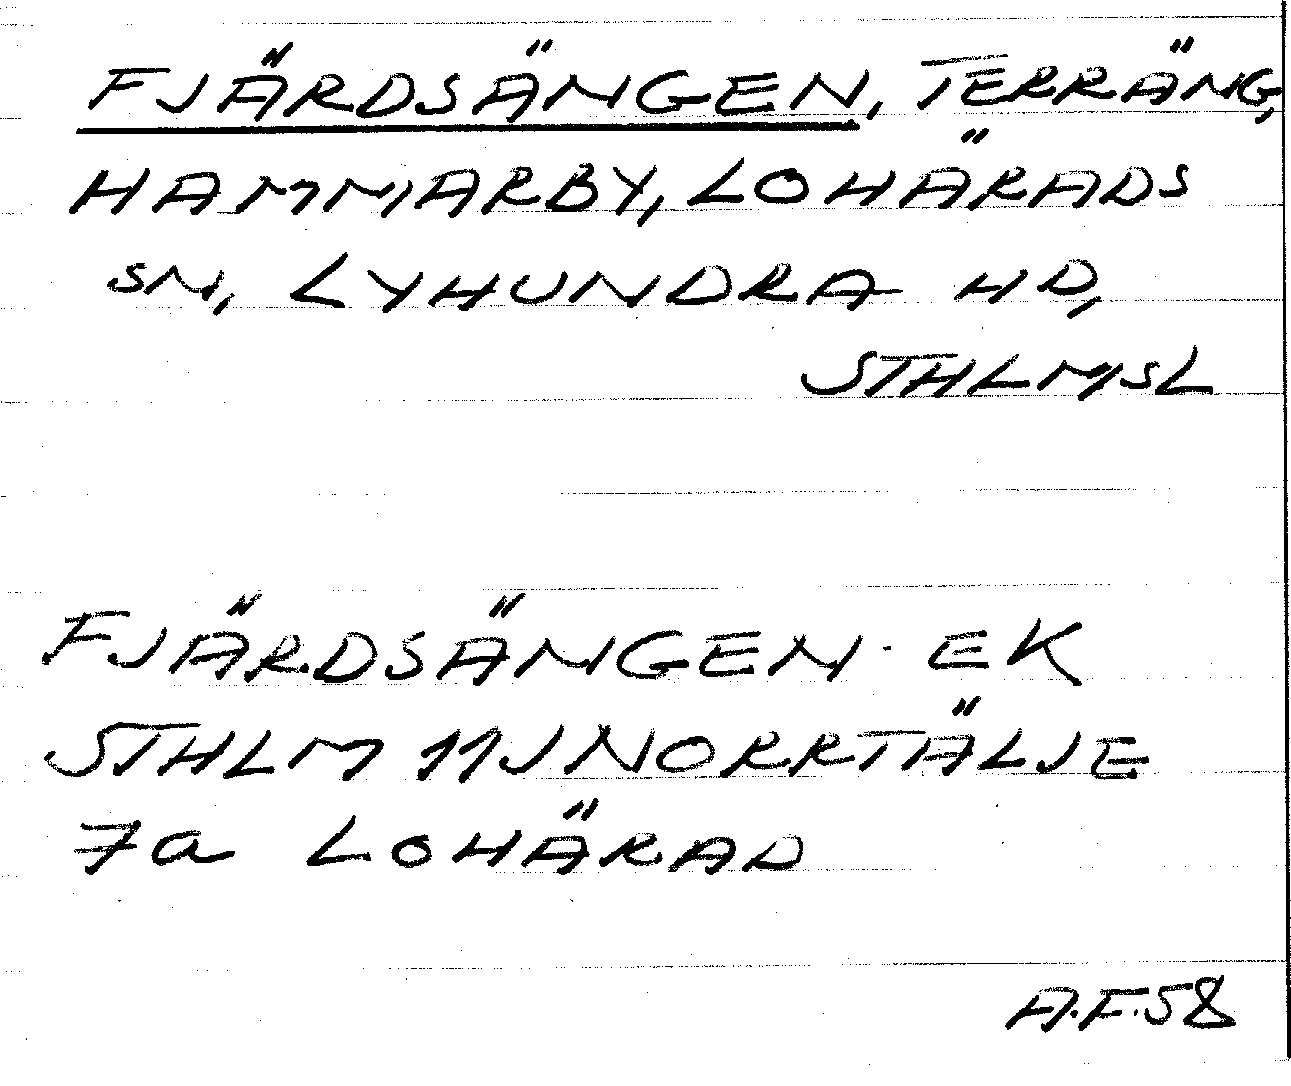 FJÄRDSÄNGEN, TERRÄNG,
HAMMARBY, LOHÄRADS
SN, LYHUNDRA HD,
STHLMSL
FJÄRDSÄNGEN · EK
STHLM 11J NORRTÄLJE
7a LOHÄRAD
A.F.58